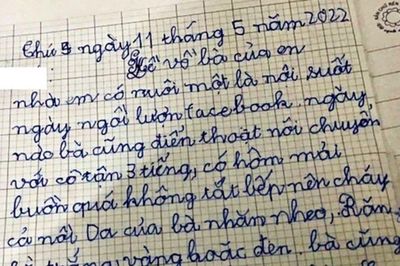 Thứ 5 ngày 11 tháng 5 năm 2022
Kể về bà của en
nhà em có nuôi một là nội suốt
ngày ngồi lướn facebook. ngày
nào bà cũng điển thoạt nói chuyện
với cô tận 3 tiếng, có hôm mải
buôn quá không tắt bếp nên cháy
cả nồi Da của bà nhăn nheo, Răn
vàng hoặc đen. bà cũng